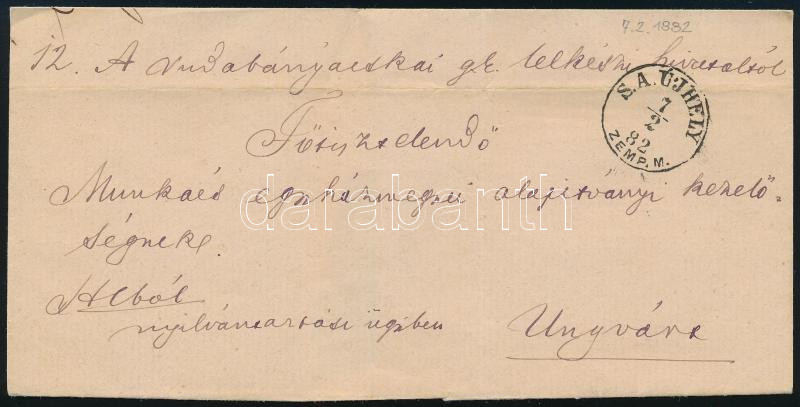 7.2.1882
12. A rudabányácskai g. k. lelkészi hivataltól
S. A. ÚJHELY
7/2
82
ZEMP. M.
Főtisztelendő
Munkács egyházmegyei alapitványi kezelő-
ségnek
darabanth
Hcból
nyilvántartási ügyben
Ungvárt